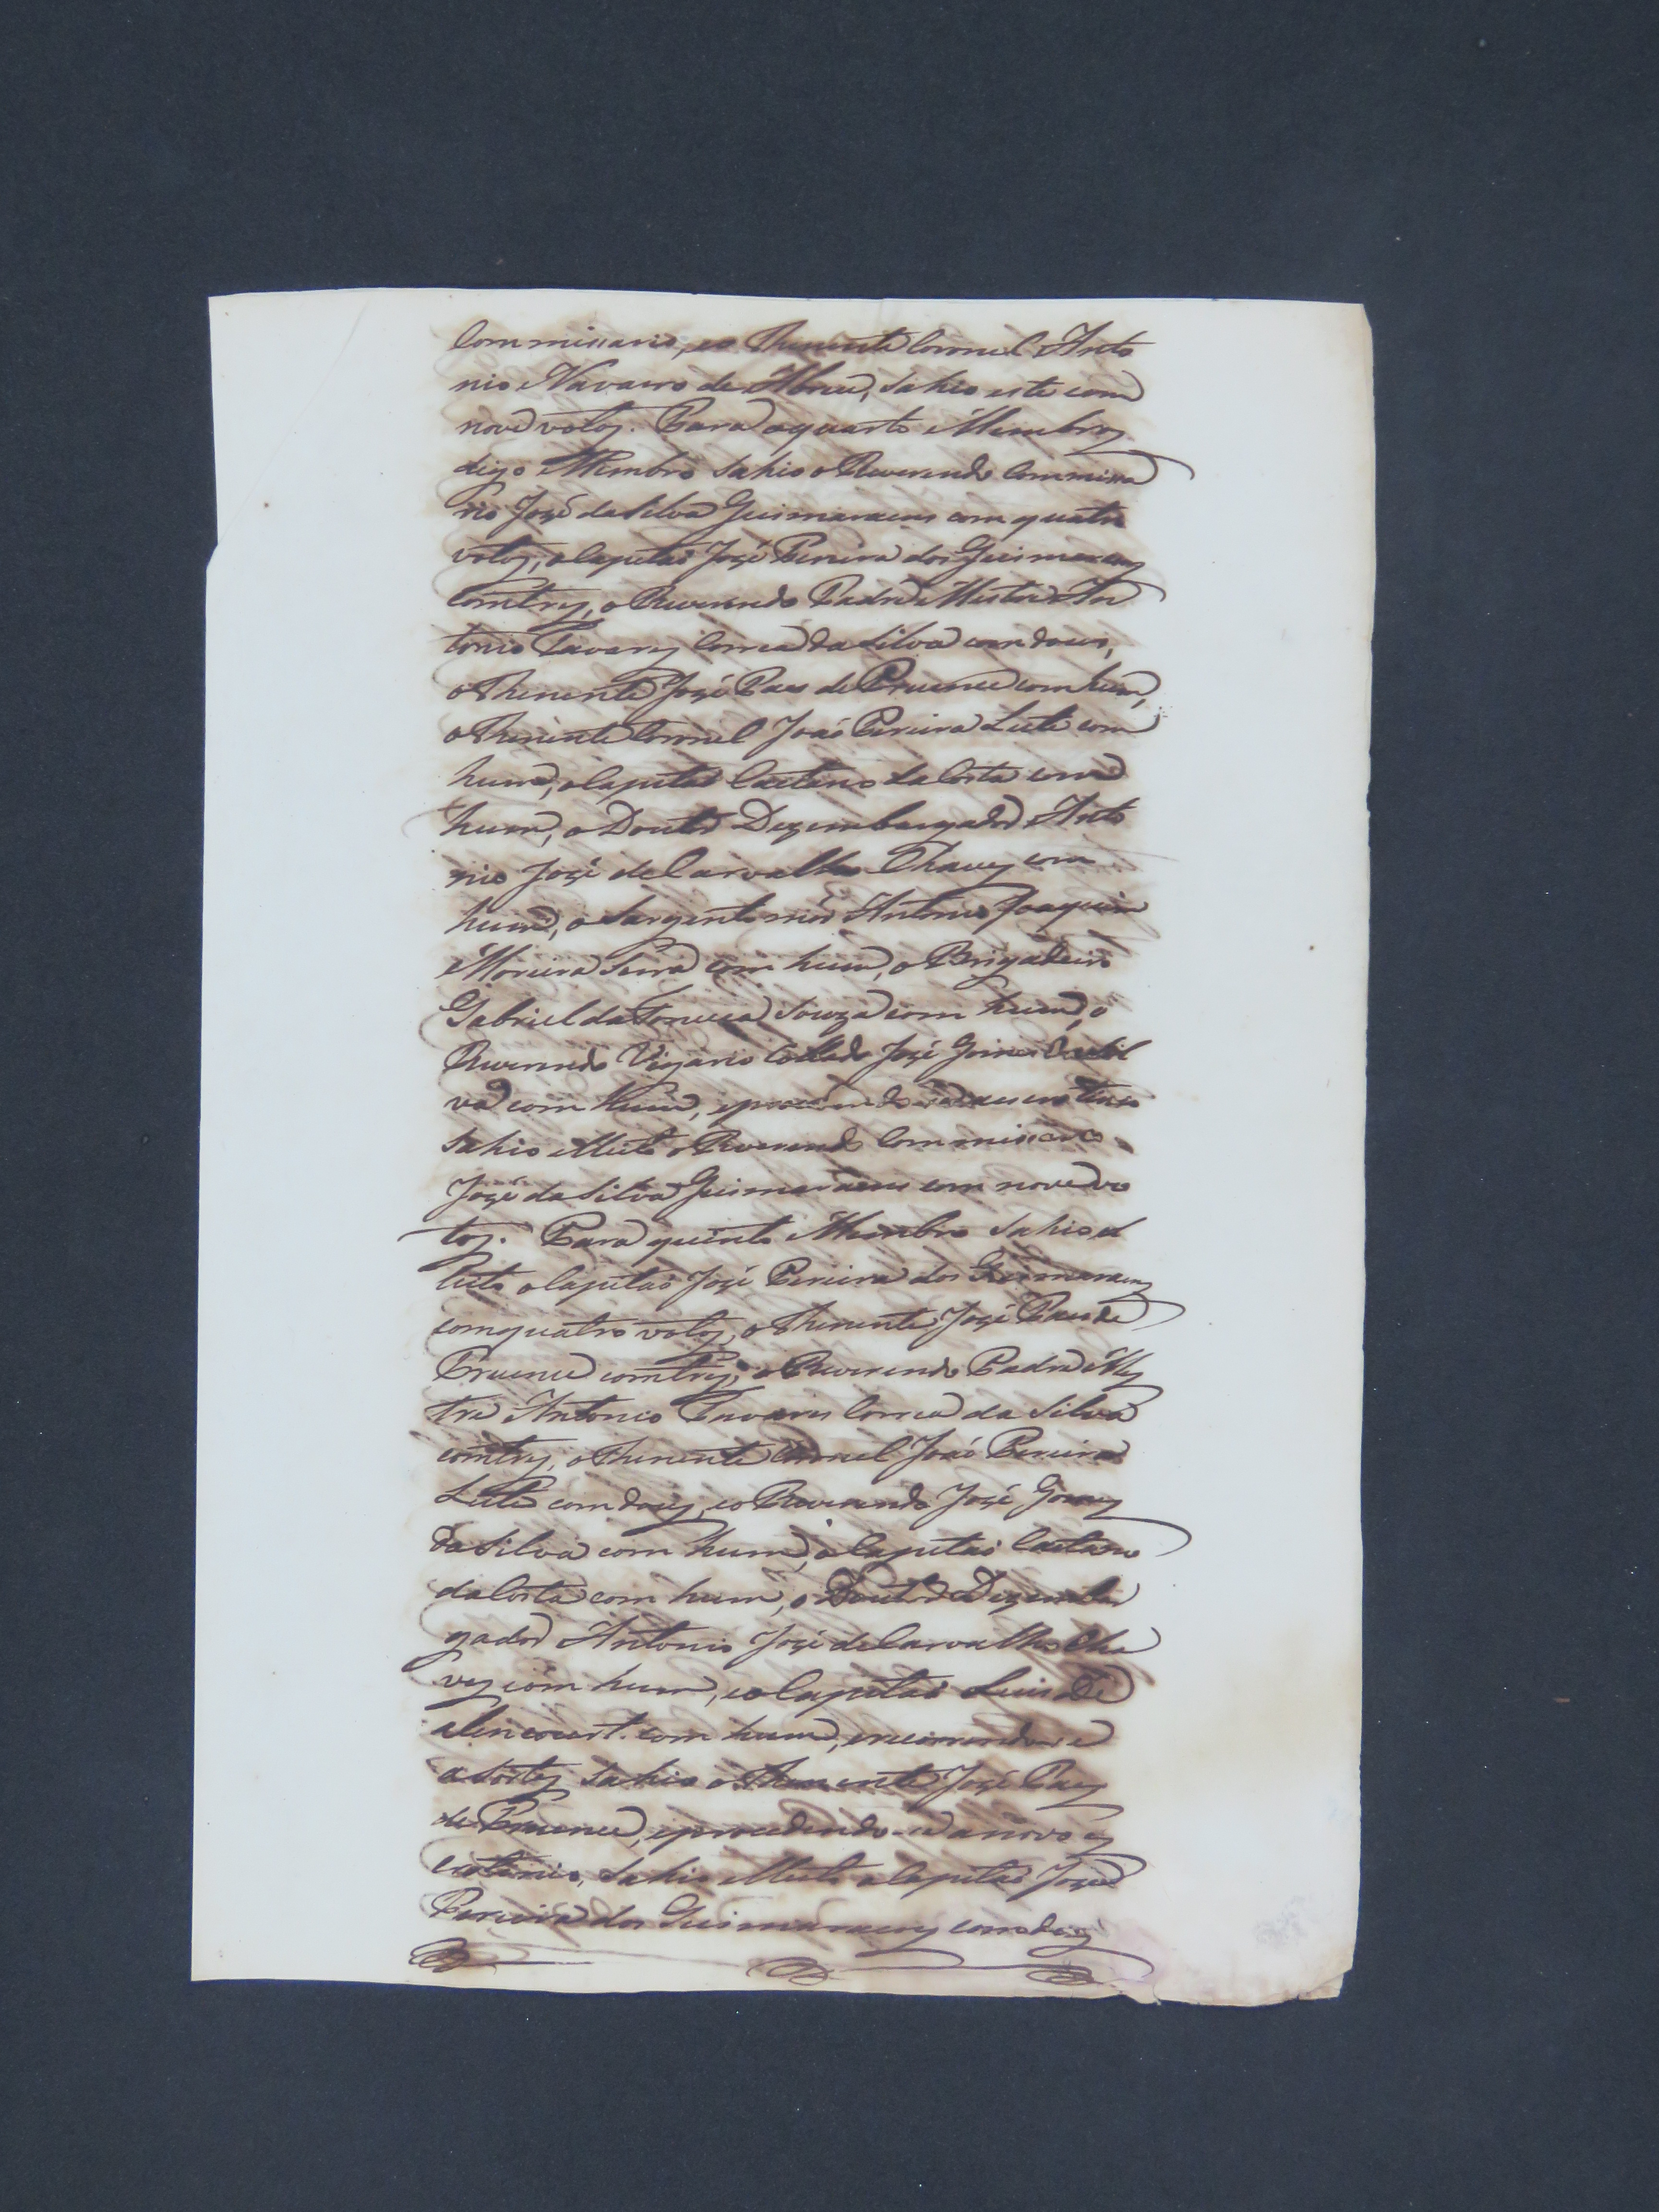 Commissario, eo Thenente Coronel Anto
nio Navarro de Abreu, Sahio este com
nove votos. Para oquarto Membros
digo Membro Sahio o Reverendo Commissa
rio José da Silva Guimaraens com quatro
votos, oCapitaõ José Pereira dos Guimaraens
comtres, o Reverendo Padre Mestre An
tonio Tavares Correa da Silva com dous,
oThenente José Paes de Pruença com hum,
oThenente Coronel Joaõ Pereira Leite com
hum, oCapitaõ Caetano daCosta com
hum, o Doutor Dezembargador Anto
nio José deCarvalho Chaves com
hum, o Sargento mór Antonio Joaquim
Moreira Serra com hum, o Brigadeiro
Gabriel daFonseca Souza com hum, o
Reverendo Vigario Collado José Gomes daSil
va com hum, eprocedendo
Sahio elleito oReverendo Commissario
José da Silva Guimaraens com nove vo
tos. Para quinto Membro Sahio el
leito oCapitaõ José Pereira dos Guimaraens
comquatro votos, oThenente José Paes de
Pruença comtres, oReverendo Padre Mes
tre Antonio Tavares Correa da Silva
comtres, oThenente Coronel Joaõ Pereira
Leite com dous, eo Reverendo José Gomes
daSilva com hum, oCapitaõ Caetano
daCosta com hum, o Doutor Dezembar
gador Antonio José deCarvalho Cha
ves com hum, eoCapitaõ Luis De
alincourt com hum,
asortes Sahio oThenente José Paes
de Pruença, eprocedendo-se anovo es
crotinio, Sahio elleito oCapitaõ José
Pereira dos Guimaraens com dez